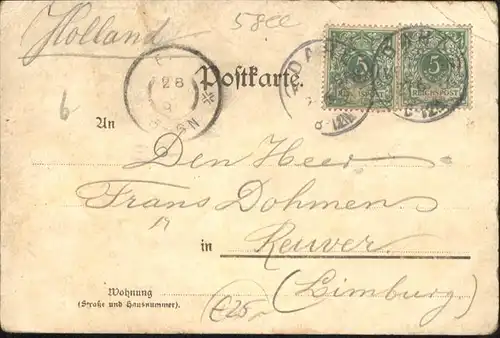 Holland
58
5 5
REICHSPOST REICHSPOST
Postkarte.
28
8
6
An
Den Heer
Frans Dohmen
in Reuver
(Limburg)
Wohnung
(Straße und Hausnummer).
€25.-